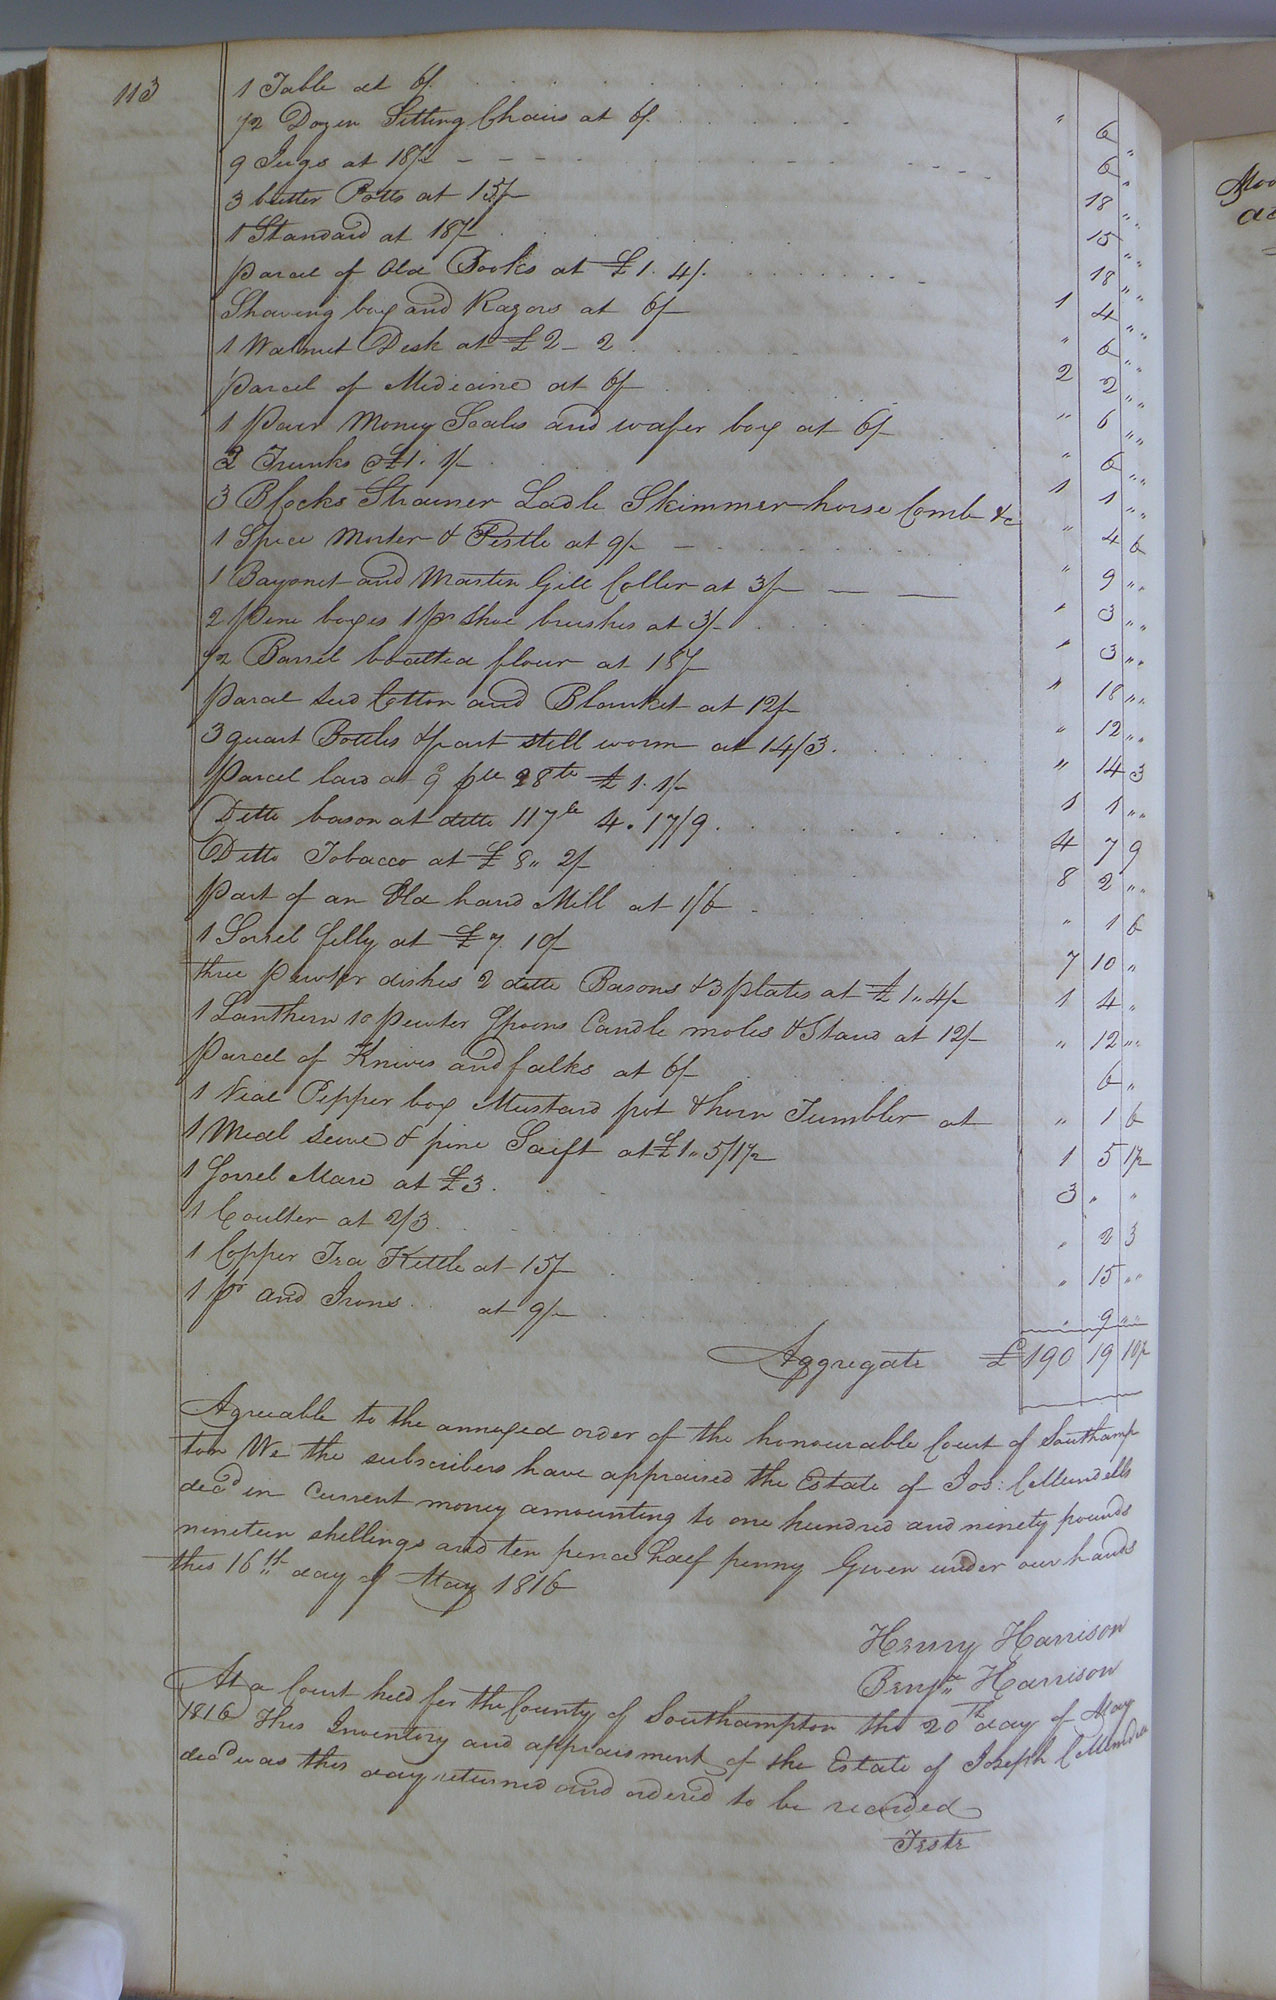 113
1 Table at 6/. " 6 "
1/2 Dozen Sitting Chairs at 6/. 6 "
9 Jugs at 18/- 18 "
3 butter Potts at 15/- 15 "
1 Standard at 18/- 18 "
parcel of Old Books at £1. 4/. 1 4 "
Shaving box and Razors at 6/- " 6 "
1 Walnut Desk at £2-2 2 2 "
parcel of Medicine at 6/- " 6 "
1 Pair Money Scales and wafer box at 6/- " 6 "
2 Trunks @ £1. 1/- 1 1 "
3 Blocks Strainer Ladle Skimmer horse Comb &c " 4 6
1 Spice Morter & Pestle at 9/- " 9 "
1 Bayonet and Marten Gill Coller at 3/- " 3 "
2 pine boxes 1 pr shoe brushes at 3/- " 3 "
1/2 Barrel boalted flour at 18/- " 18 "
parcel seed Cotton and Blanket at 12/- " 12 "
3 quart Bottles & part still worm at 14/3. " 14 3
Parcel lard at 9 28 lb £1. 1/- 1 1 "
Ditto bason at ditto 117 lb 4. 17/9. 4 7 9
Ditto Tobacco at £8" 2/- 8 2 "
Part of an Old hand Mill at 1/6 " 1 6
1 Sorrel filly at £7. 10/- 7 10 "
three pewter dishes 2 ditto Basons & 3 plates at £1" 4/- 1 4 "
1 Lanthern 10 pewter Spoons Candle moles & Stand at 12/- " 12 "
Parcel of Knives and falks at 6/- 6 "
1 Vial Pepper box Mustard pot & horn Tumbler at " 1 6
1 Meal Seive & pine at £1" 5/1 1/2 1 5 1 1/2
1 Sorrel Mare at £3. 3 " "
1 Coulter at 2/3 " 2 3
1 Copper Tea Kettle at 15/- " 15 "
1 pr and Irons at 9/- " 9 "
Aggregate £190 19 10 1/2
Agreeable to the annexed order of the honourable Court of Southamp
ton We the subscribers have appraised the Estate of Jos:
decd in Current money amounting to one hundred and ninety pounds
nineteen shellings and ten pence half penny Given under our hands
this 16th day of May 1816
Henry Harrison
Benja Harrison
At a Court held for the County of Southampton the 20th day of May
1816 This Inventory and appraisment of the Estate of Joseph
decd was this day returned and ordered to be recorded
Teste